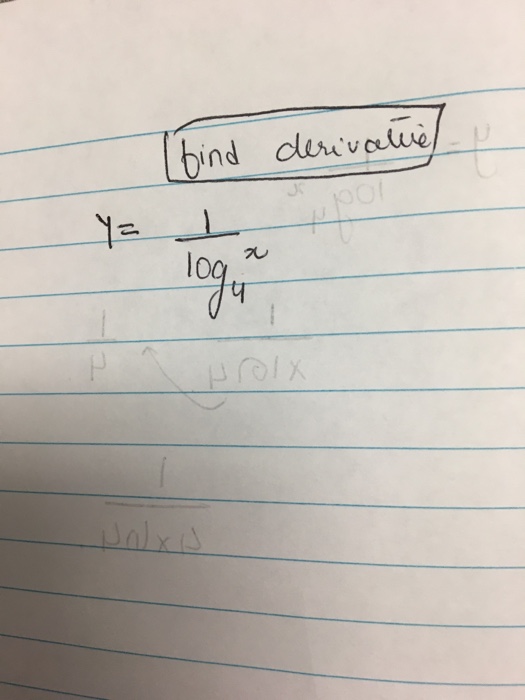 find derivative
y= 1
log₄ x